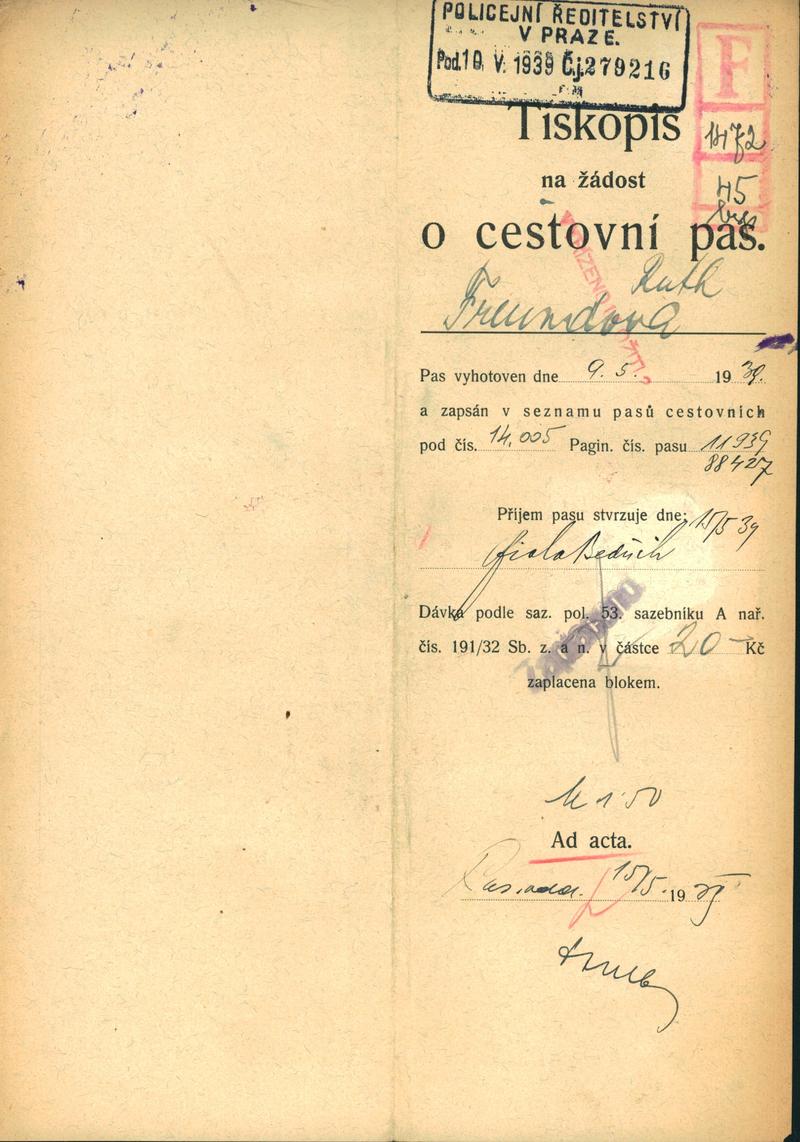 POLICEJNÍ ŘEDITELSTVÍ
V PRAZE.
Pod. 10. V. 1939 Č.j. 279216
F
1472
45
Tiskopis
na žádost
o cestovní pas.
Ruth
Freundova
Pas vyhotoven dne 9. 5. 1939.
a zapsán v seznamu pasů cestovních
pod čís. 14.005 Pagin. čís. pasu 11939
88427
Příjem pasu stvrzuje dne: 15/5 39
Dávka podle saz. pol. 53. sazebníku A nař.
čís. 191/32 Sb. z. a n. v částce 20 – Kč
Zapraveno
zaplacena blokem.
1˙50
Ad acta.
15/5. 1939